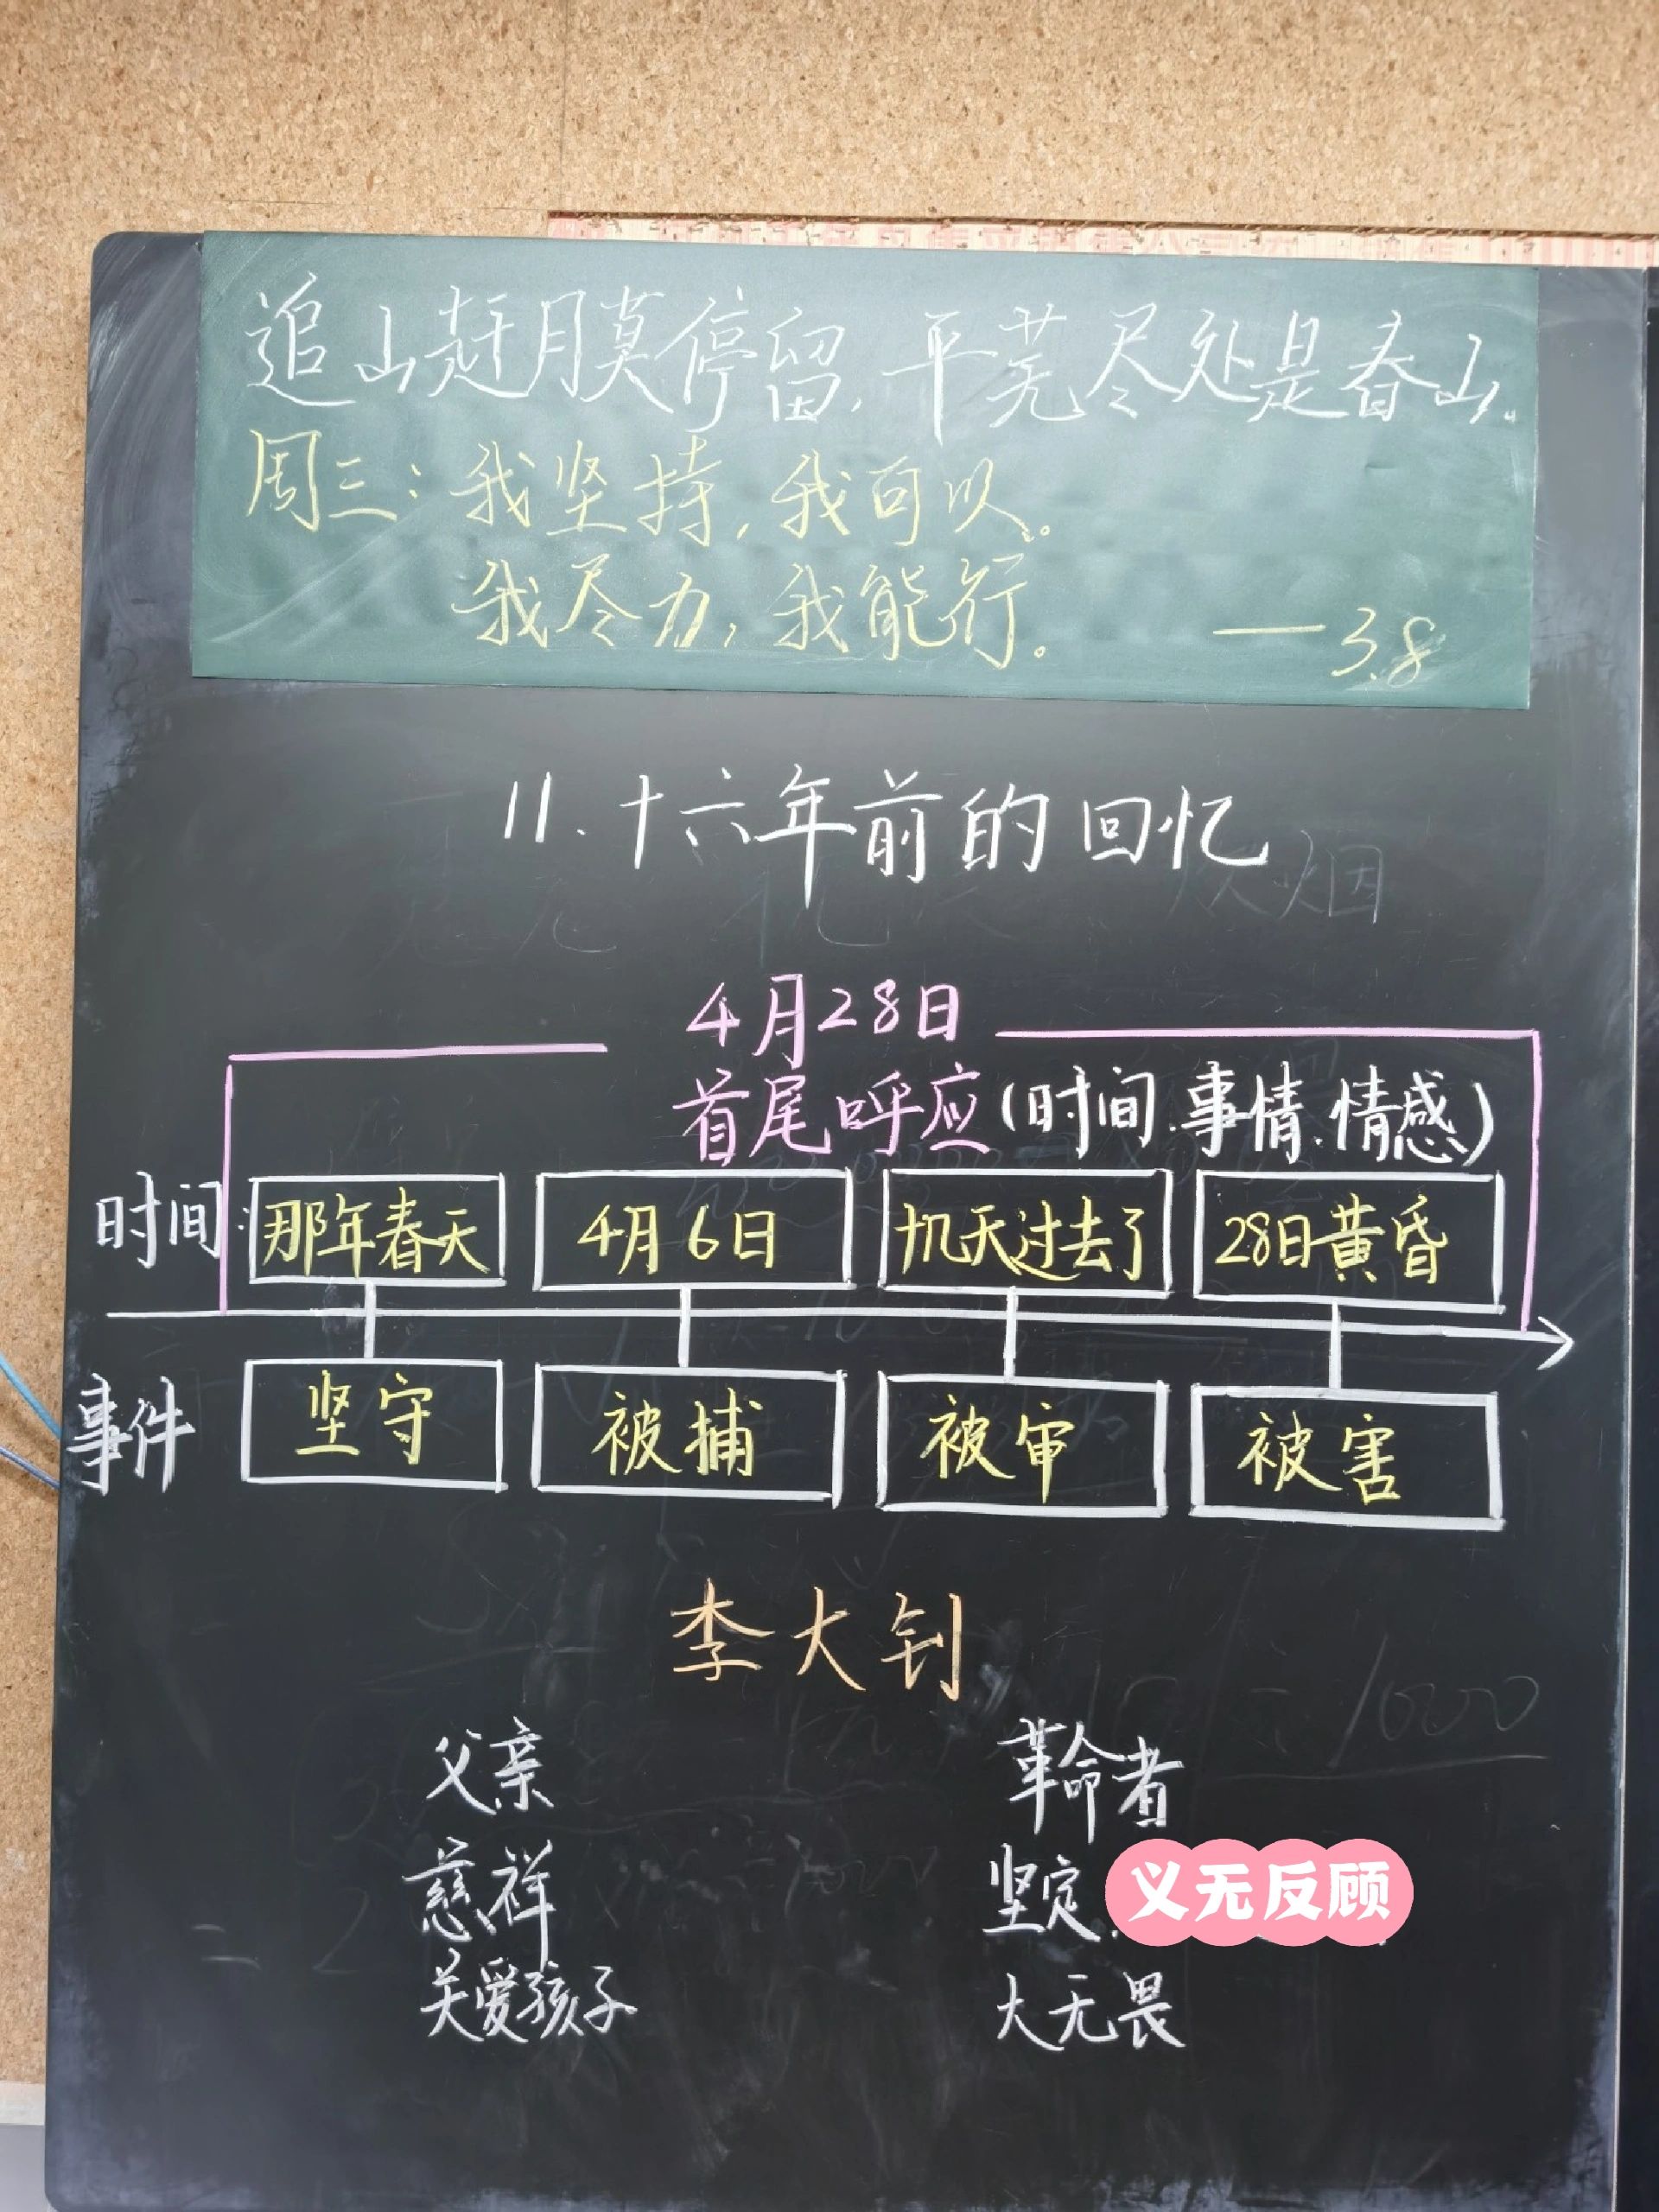 追山赶月莫停留,平芜尽处是春山。
周三:我坚持,我可以。
我尽力,我能行。
——3.8
11.十六年前的回忆
炊烟
4月28日
首尾呼应(时间.事情.情感)
时间: 那年春天 4月6日 几天过去了 28日黄昏
事件 坚守 被捕 被审 被害
李大钊
父亲 革命者
慈祥 坚定.义无反顾
关爱孩子 大无畏